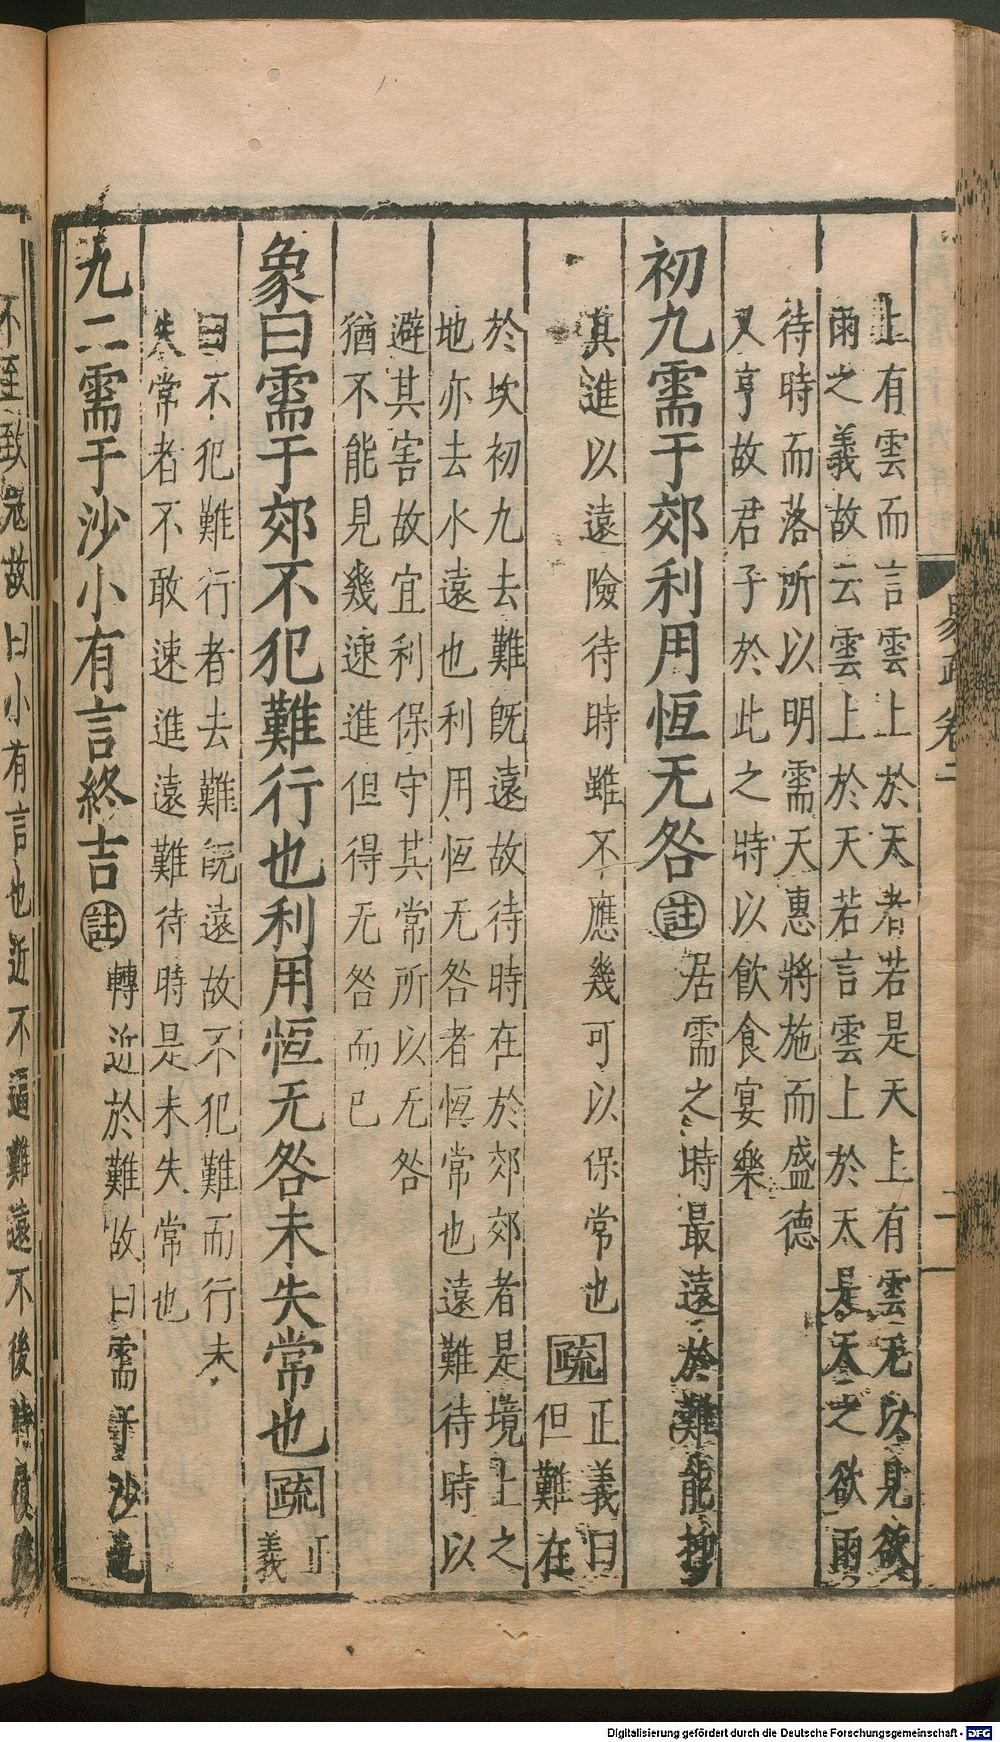 易疏卷二
二
上有雲而言雲上於天者若是天上有雲无以見欲
雨之義故云雲上於天若言雲上於天是天之欲雨
待時而落所以明需天惠將施而盛德
又亨故君子於此之時以飲食宴樂
初九需于郊利用恆无咎註居需之時最遠於難能抑
其進以遠險待時雖不應幾可以保常也疏正義曰
但難在
於坎初九去難既遠故待時在於郊郊者是境上之
地亦去水遠也利用恆无咎者恆常也遠難待時以
避其害故宜利保守其常所以无咎
猶不能見幾速進但得无咎而已
象曰需于郊不犯難行也利用恆无咎未失常也疏正
義
曰不犯難行者去難既遠故不犯難而行未
失常者不敢速進遠難待時是未失常也
九二需于沙小有言終吉註轉近於難故曰需于沙也
不至致寇故曰小有言也近不逼難遠不後時
Digitalisierung gefördert durch die Deutsche Forschungsgemeinschaft - DFG